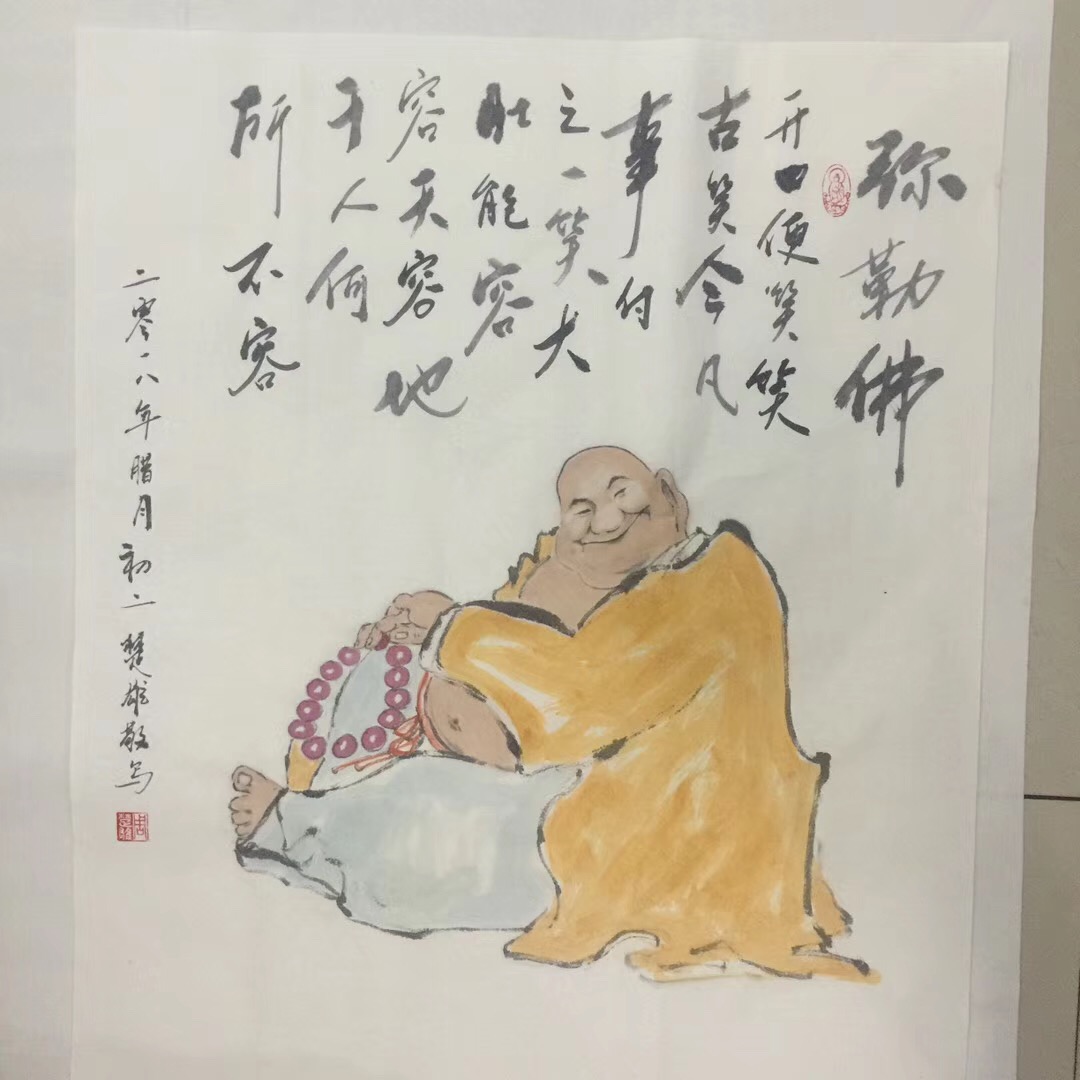 弥勒佛
开口便笑笑
古笑今凡
事付
之一笑大
肚能容
容天容地
于人何
所不容
二零一八年腊月初二楚雄敬写